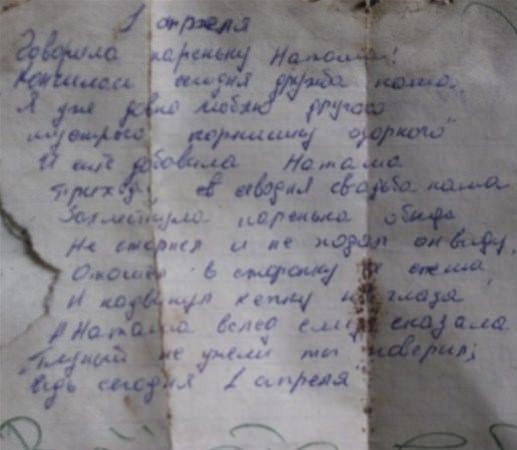 1 апреля
Говорила пареньку Наташа!
Кончилась сегодня дружба наша.
Я уже давно люблю другого
шустрого парнишку озорного"
И ещё добавила Наташа
Приходи, сегодня свадьба наша
Захлестнула паренька обида
Не стерпел и не подал он виду,
Отошел в сторонку не спеша
И надвинул кепку на глаза
А Наташа вслед ему сказала
"Глупый не ужели ты поверил;
ведь сегодня 1 апреля"